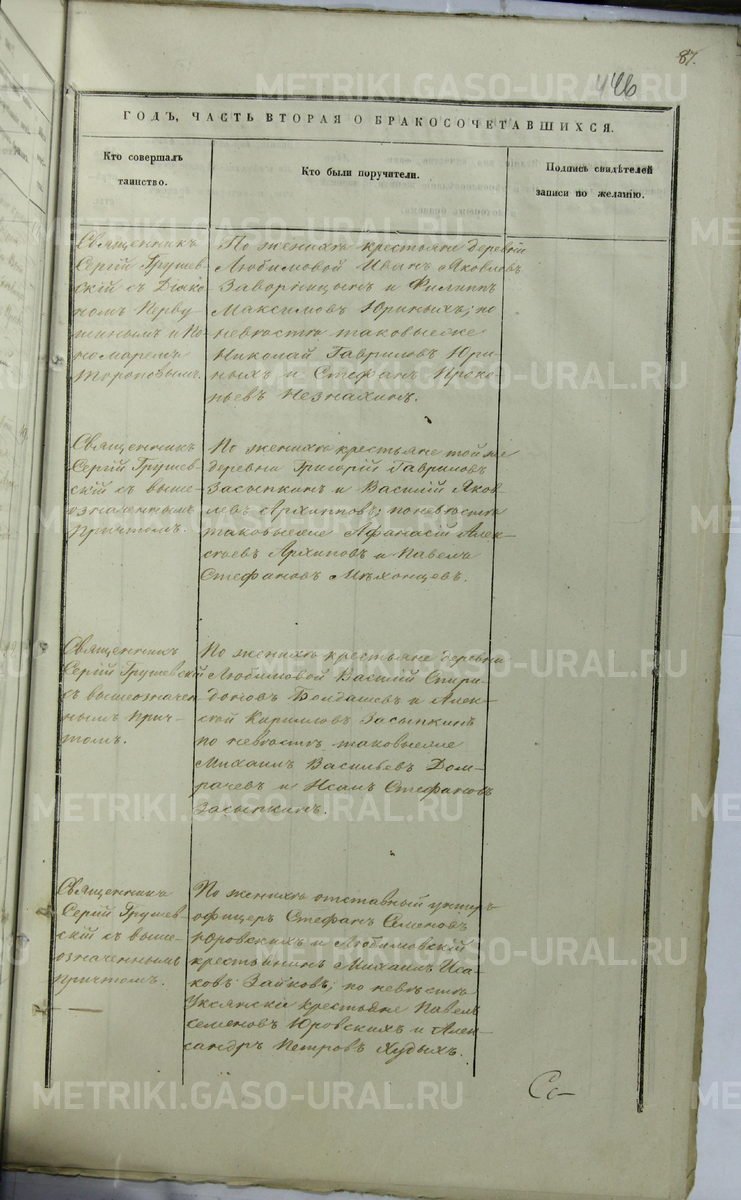 87.
446
ГОДЪ, ЧАСТЬ ВТОРАЯ О БРАКОСОЧЕТАВШИХСЯ.
Кто совершалъ
таинство.
Кто были поручители.
Подпись свидѣтелей
записи по желанію.
Священникъ
Сергій Грушев-
скій съ Діако-
номъ Перву-
шинымъ и По-
номаремъ
Тороповымъ.
По женихѣ крестьяни деревни
Любимовой Иванъ Яковлевъ
и Филиппъ
Максимовъ Юриныхъ; по
невѣстѣ таковыеже
Николай Гавриловъ Юри-
ныхъ и Стефанъ Проко-
пьевъ Незнахинъ.
Священникъ
Сергій Грушев-
скій съ выше-
означеннымъ
Причтомъ.
По женихѣ крестьяне той же
деревни Григорій Гавриловъ
Засыпкинъ и Василій Яков-
левъ Архиповъ; по невѣстѣ
таковыеже Афанасій Алек-
сѣевъ Архиповъ и Павелъ
Стефановъ Мѣхонцевъ.
Священникъ
Сергій Грушевскій
съ вышеозначен-
нымъ Прич-
томъ.
По женихѣ крестьяне деревни
Любимовой Василій Спири-
доновъ Болдашевъ и Алек-
сѣй Кирилловъ Засыпкинъ
по невѣстѣ таковыеже
Михаилъ Васильевъ Дом-
рачевъ и Исакъ Стефановъ
Засыпкинъ.
Священникъ
Сергій Грушев-
скій съ выше-
означеннымъ
Причтомъ.
По женихѣ отставный унтеръ
офицеръ Стефанъ Семеновъ
Юровскихъ и Любимовскій
крестьянинъ Михаилъ Иса-
ковъ Зайковъ; по невѣстѣ
Уксянскіе крестьяне Павелъ
Семеновъ Юровскихъ и Алек-
сандръ Петровъ Худыхъ.
Со-
METRIKI.GASO-URAL.RU
METRIKI.GASO-URAL.RU
METRIKI.GASO-URAL.RU
METRIKI.GASO-URAL.RU
METRIKI.GASO-URAL.RU
METRIKI.GASO-URAL.RU
METRIKI.GASO-URAL.RU
METRIKI.GASO-URAL.RU